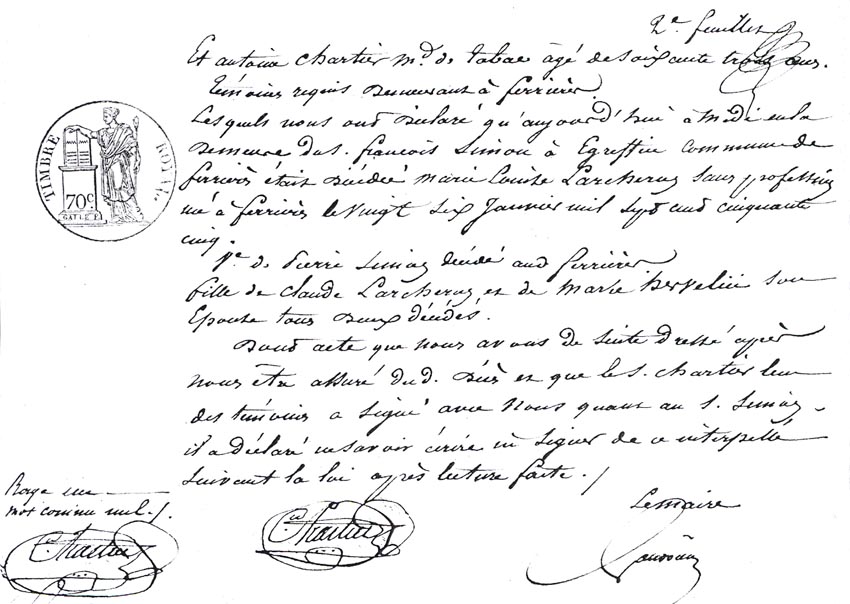 2e feuillet
Et antoine chartier md. de tabac âgé de soixante trois ans.
témoins requis demeurant à ferrières.
Lesquels nous ont déclaré qu'aujourd'hui à midi en la
demeure du s. françois Simon à Egreffin commune de
ferrières était décédée Marie Louise Larcheron sans profession
née à ferrières le vingt six Janvier mil sept cent cinquante
cinq.
Ve. de Pierre Simon décédé aud ferrières
fille de Claude Larcheron et de Marie son
Epouse tous deux décédés.
Dont acte que nous avons de suite dressé après
nous être assuré dud. décès et que le s. Chartier l'un
des témoins a signé avec nous quant au s. Simon
il a déclaré ne savoir écrire ni signer de ce interpellé
suivant la loi après lecture faite ./
TIMBRE ROYAL
70c
Rayé un
mot comme nul ./.
Chartier
Chartier
Le maire